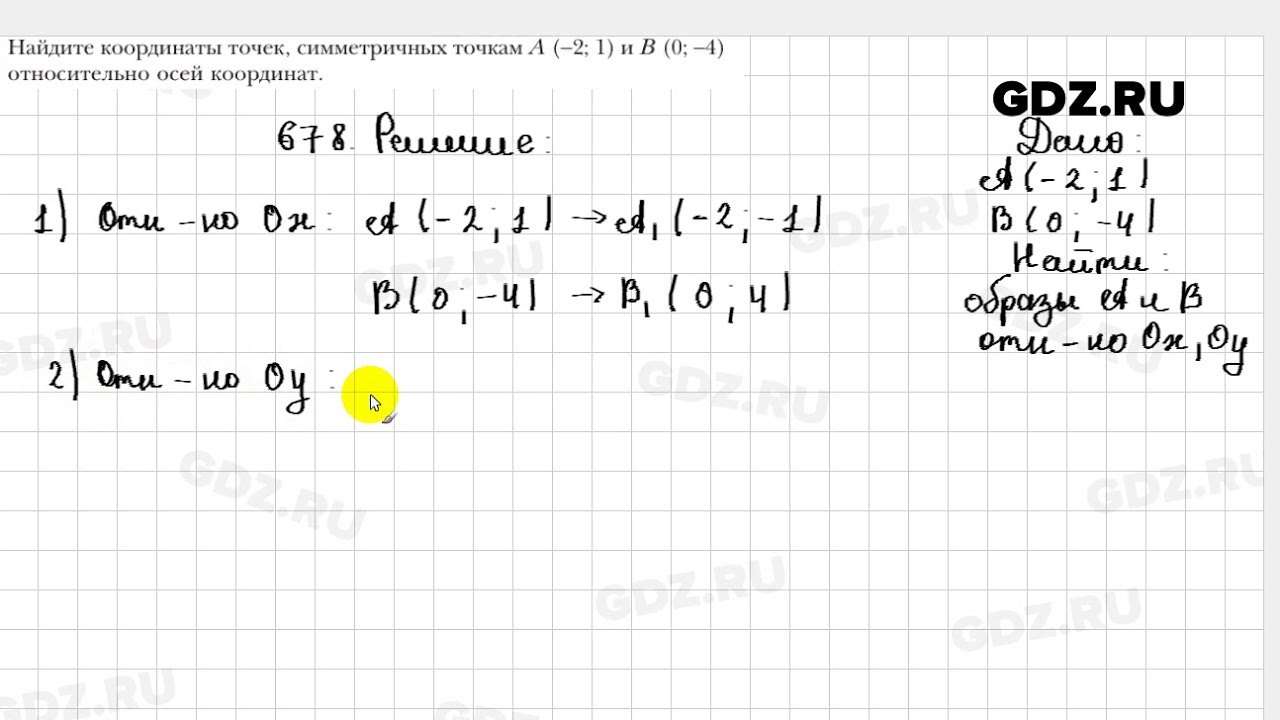 Найдите координаты точек, симметричных точкам A (–2; 1) и B (0; –4)
относительно осей координат.
GDZ.RU
678. Решение:
Дано:
A(-2; 1)
B(0; -4)
Найти:
образы A и B
отн-но Ox, Oy
1) Отн-но Ox: A(-2; 1) → A₁(-2; -1)
B(0; -4) → B₁(0; 4)
2) Отн-но Oy:
GDZ.RU
GDZ.RU
GDZ.RU
GDZ.RU
GDZ.RU
GDZ.RU
GDZ.RU
GDZ.RU
GDZ.RU
GDZ.RU